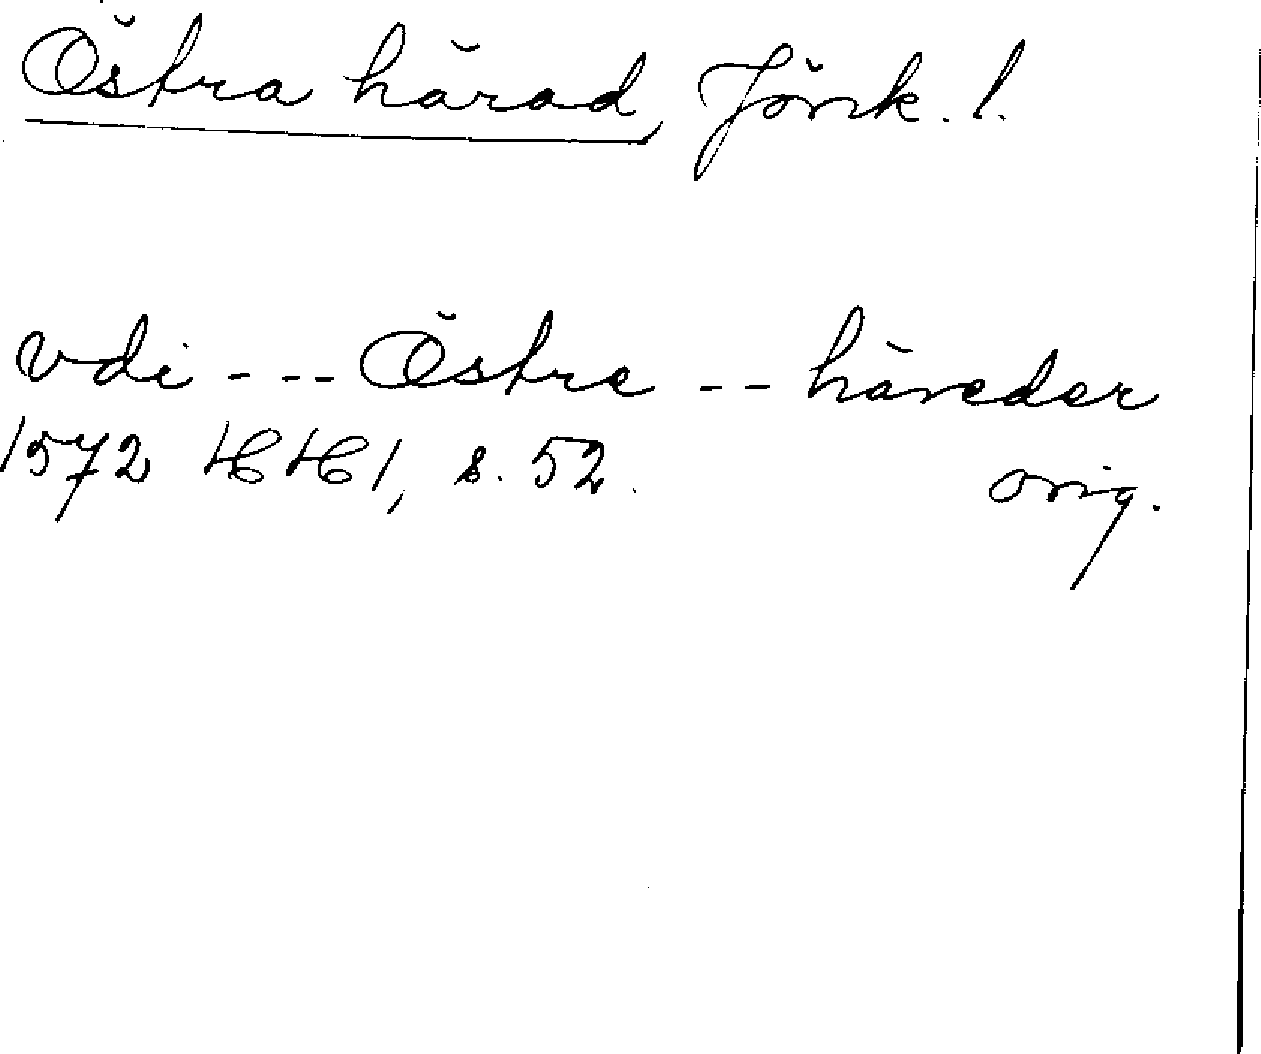 Östra härad, Jönk. l.
vdi --- Östre -- häreder
1572 HH 1, s. 52. orig.